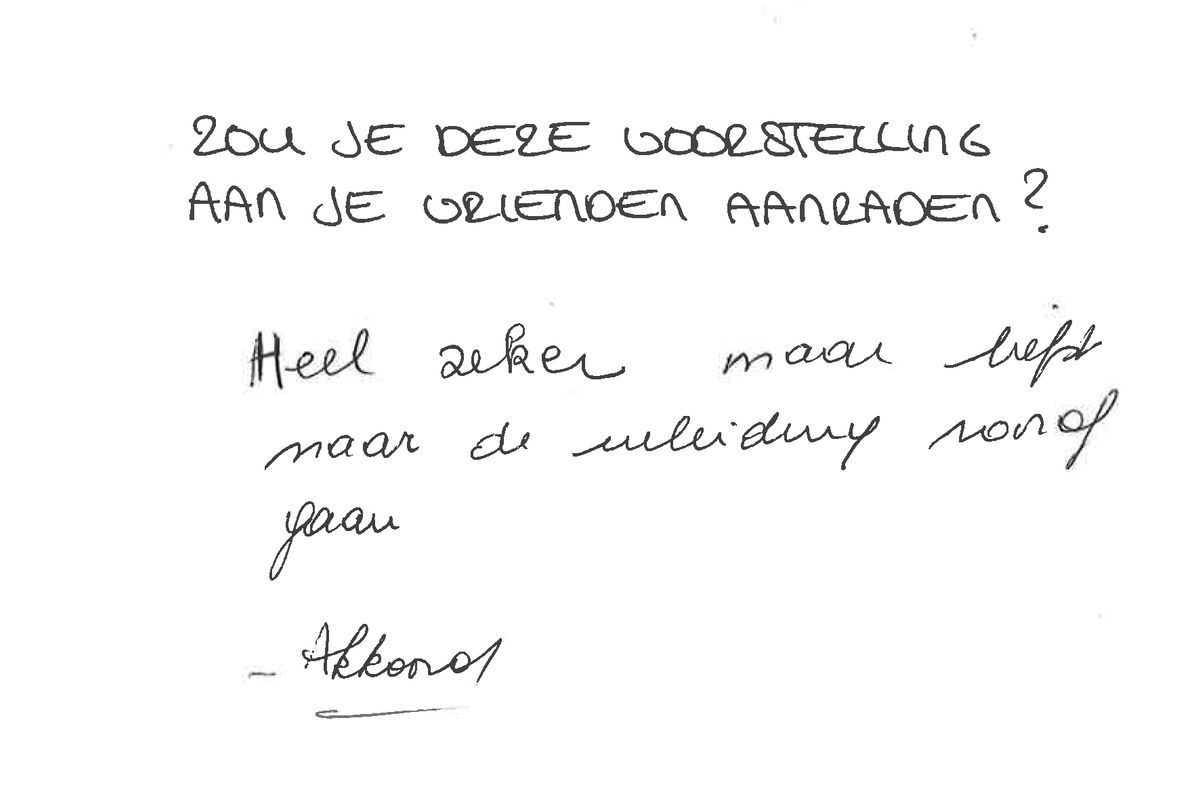 ZOU JE DEZE VOORSTELLING
AAN JE VRIENDEN AANRADEN?
Heel zeker maar liefst
naar de inleiding vooraf
gaan
- Akkoord